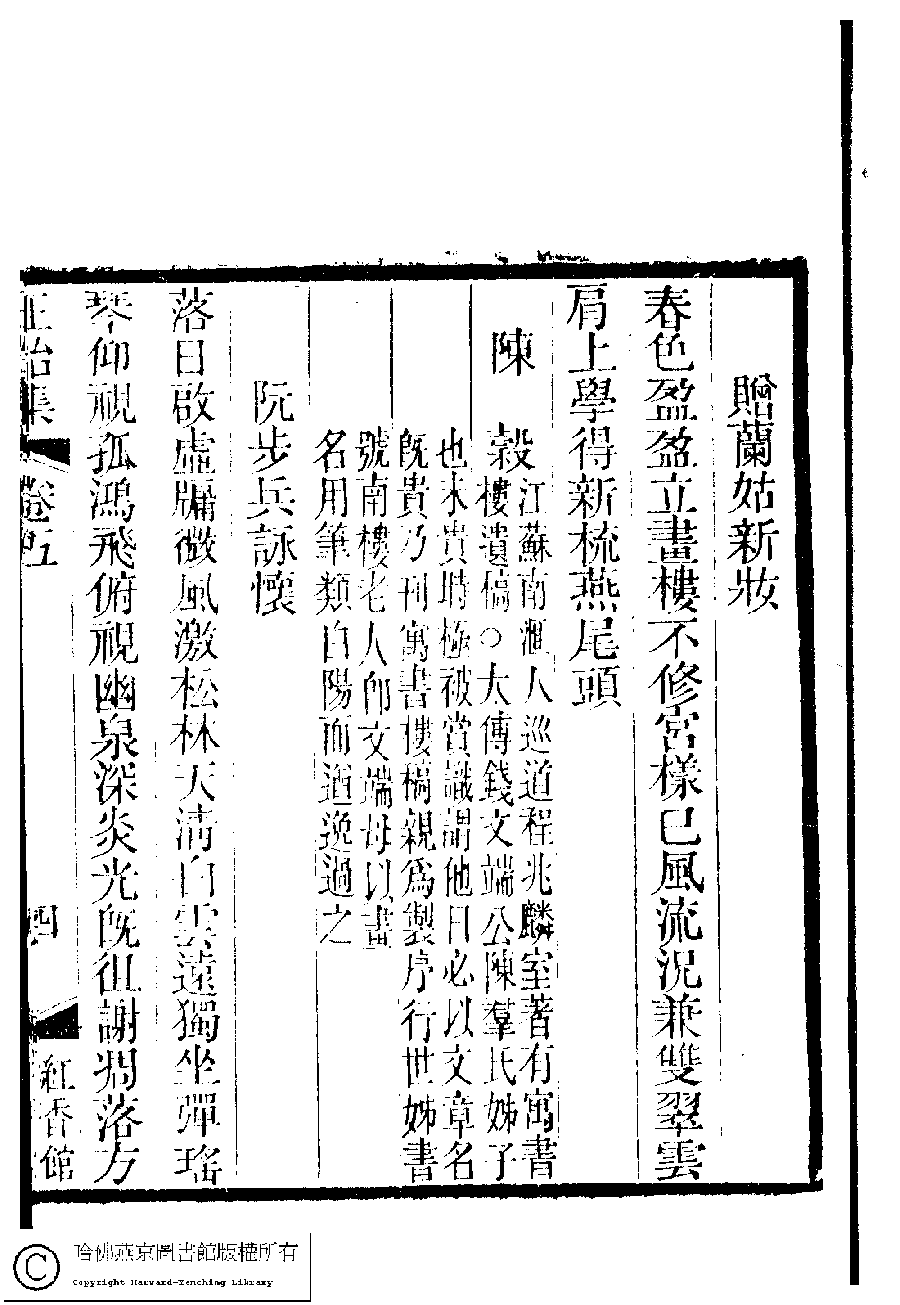 贈蘭姑新妝
春色盈盈立畫樓不修宮樣已風流況兼雙翠雲
肩上學得新梳燕尾頭
陳 穀
江蘇南滙人巡道程兆麟室著有寓書
樓遺稿○太傅錢文端公陳羣氏姊子
也未貴時極被賞識謂他日必以文章名
既貴乃刊寓書樓稿親爲製序行世姊書
號南樓老人卽文端母以畫
名用筆類白陽而遒逸過之
阮步兵詠懷
落日啟虛牖微風激松林天淸白雲遠獨坐彈瑤
琴仰視孤鴻飛俯視幽泉深炎光既徂謝凋落方
正始集 卷五 四 紅香館
哈佛燕京圖書館版權所有
Copyright Harvard-Yenching Library